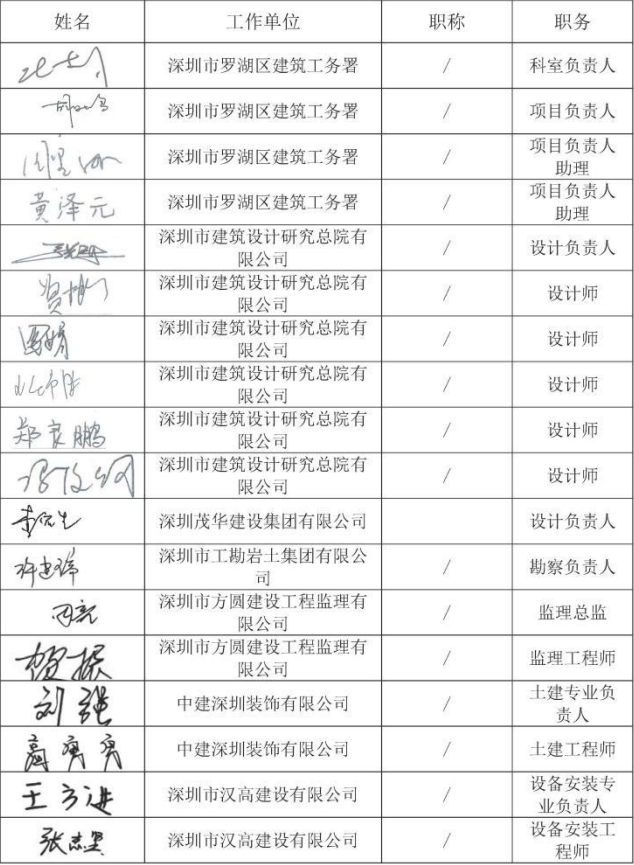 姓名 工作单位 职称 职务
深圳市罗湖区建筑工务署 / 科室负责人
深圳市罗湖区建筑工务署 / 项目负责人
深圳市罗湖区建筑工务署 / 项目负责人
助理
黄泽元 深圳市罗湖区建筑工务署 / 项目负责人
助理
深圳市建筑设计研究总院有
限公司 / 设计负责人
深圳市建筑设计研究总院有
限公司 / 设计师
深圳市建筑设计研究总院有
限公司 / 设计师
深圳市建筑设计研究总院有
限公司 / 设计师
郑良鹏 深圳市建筑设计研究总院有
限公司 / 设计师
深圳市建筑设计研究总院有
限公司 / 设计师
深圳茂华建设集团有限公司 设计负责人
深圳市工勘岩土集团有限公
司 / 勘察负责人
深圳市方圆建设工程监理有
限公司 / 监理总监
贺振 深圳市方圆建设工程监理有
限公司 / 监理工程师
刘强 中建深圳装饰有限公司 / 土建专业负
责人
中建深圳装饰有限公司 / 土建工程师
王方进 深圳市汉高建设有限公司 / 设备安装专
业负责人
深圳市汉高建设有限公司 / 设备安装工
程师